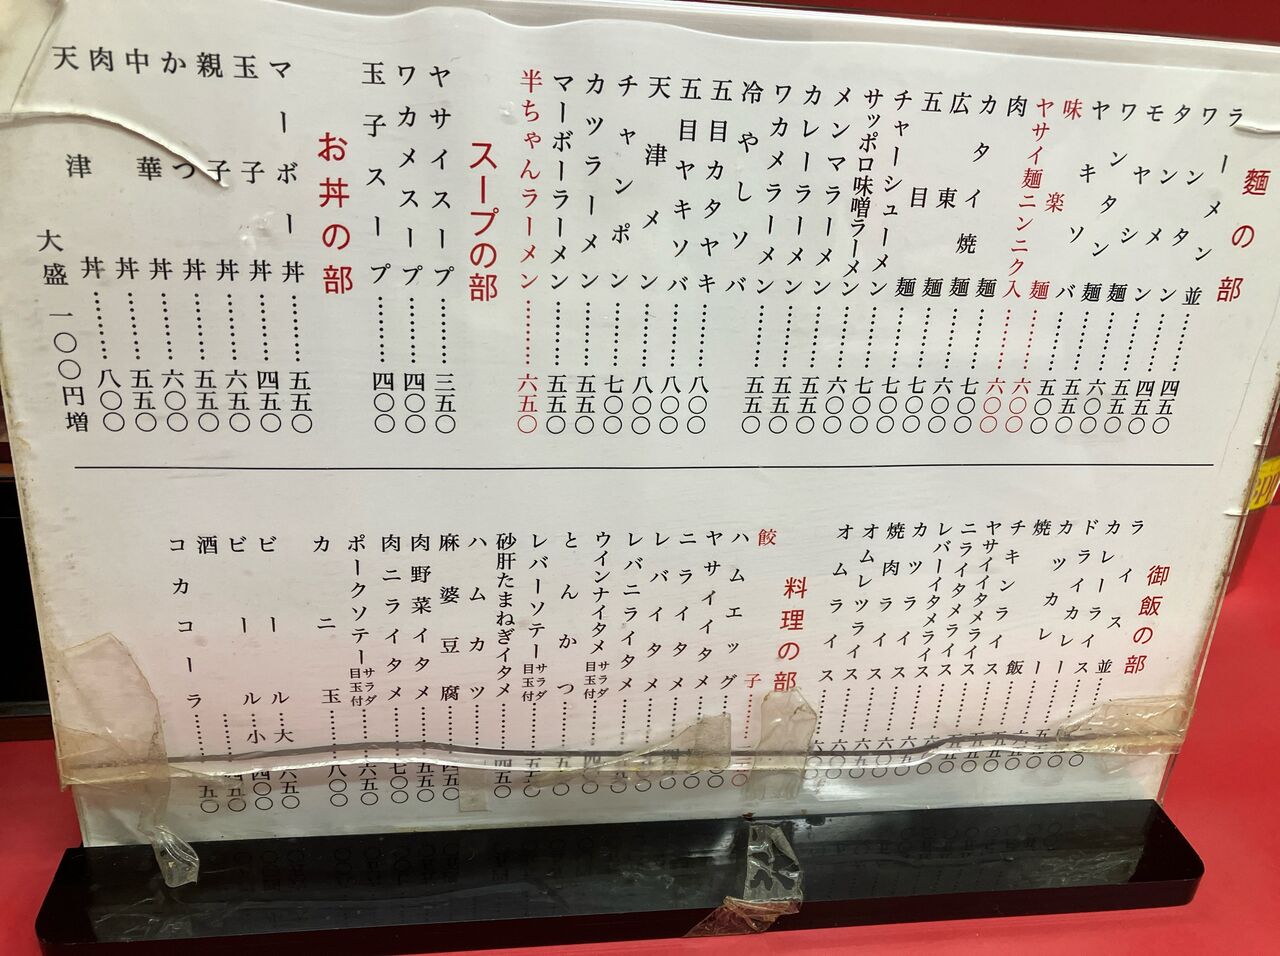 麺の部
ラーメン並……四五〇
ワンタン……四五〇
タンメン……五五〇
モヤシ麺……六〇〇
ワンタン麺……五五〇
ヤキソバ……五〇〇
味楽麺……六〇〇
ヤサイ麺ニンニク入……六〇〇
肉麺……七〇〇
カタイ焼麺……六〇〇
広東麺……七〇〇
五目麺……七〇〇
チャーシューメン……七〇〇
サッポロ味噌ラーメン……六〇〇
メンマラーメン……五五〇
カレーラーメン……五五〇
ワカメラーメン……五五〇
冷やしソバ
五目カタヤキ……八〇〇
五目ヤキソバ……八〇〇
天津メン……八〇〇
チャンポン……七〇〇
カツラーメン……五五〇
マーボーラーメン……五五〇
半ちゃんラーメン……六五〇
スープの部
ヤサイスープ……三五〇
ワカメスープ……四〇〇
玉子スープ……四〇〇
お丼の部
マーボー丼……五五〇
玉子丼……四五〇
親子丼……六五〇
かつ丼……五五〇
中華丼……六〇〇
肉丼……五五〇
天津丼……八〇〇
大盛一〇〇円増
御飯の部
ライス並……
カレーライス……
ドライカレー……
カツカレー……
焼飯……
チキンライス……
ヤサイイタメライス……
ニライタメライス……
レバーイタメライス……
カツライス……
焼肉ライス……
オムレツライス……
オムライス……
料理の部
餃子……
ハムエッグ……
ヤサイイタメ……
ニライタメ……
レバイタメ……
レバニライタメ……
ウインナイタメサラダ目玉付……
とんかつ……
レバーソテーサラダ目玉付……
砂肝たまねぎイタメ……四五〇
ハムカツ……
麻婆豆腐……四五〇
肉野菜イタメ……五五〇
肉ニライタメ……七〇〇
ポークソテーサラダ目玉付……六五〇
カニ玉……八〇〇
ビール大……六五〇
ビール小……四〇〇
酒……
コカコーラ……